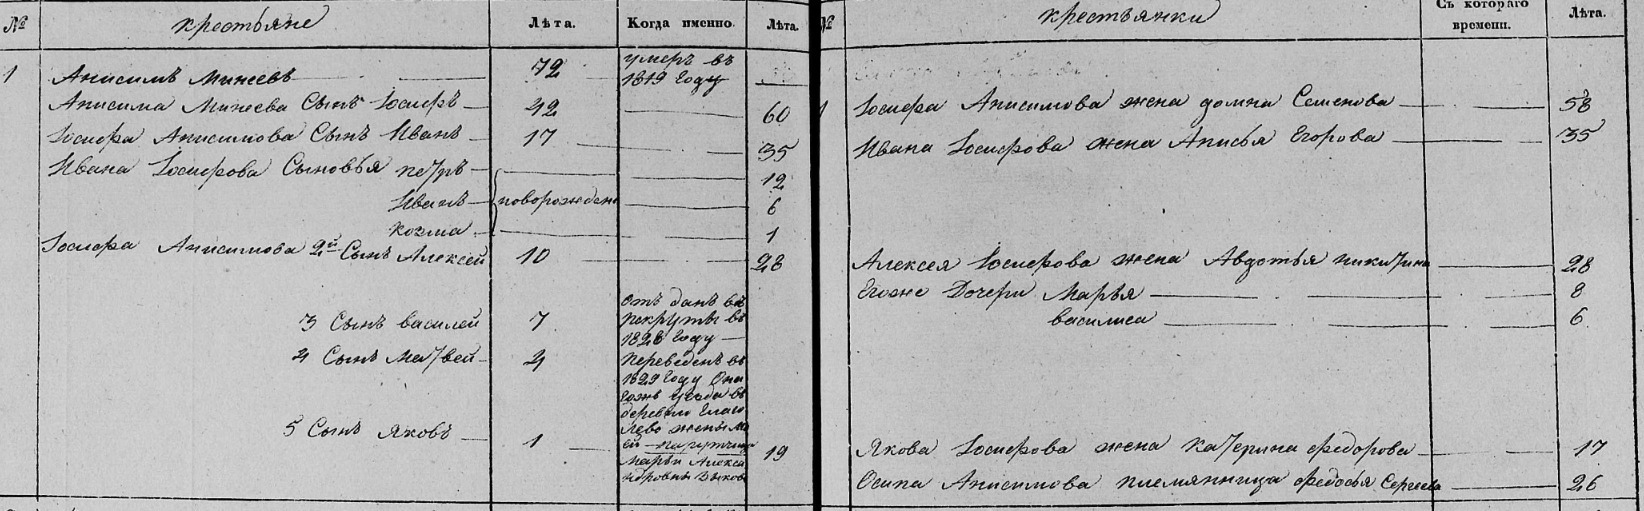 № крестьяне Лѣта. Когда именно. Лѣта.
1 Анисимъ Минеевъ 72 умеръ въ
1819 году
Анисима Минеева Сынъ Іосифъ 42 60
Іосифа Анисимова Сынъ Иванъ 17 35
Ивана Іосифова Сыновья петръ 12
Иванъ новорожден 6
козма 1
Іосифа Анисимова 2й Сынъ Алексей 10 28
3 Сынъ василей 7 отъ данъ въ
рекруты въ
1828 году
4 Сынъ матвей 4 переведенъ въ
1829 году
уезда въ
деревню
жены
5 Сынъ Яковъ 1 19
марьи Алекса
ндровны
№ крестьянки Съ котораго
времени. Лѣта.
1 Іосифа Анисимова жена домна Семенова 58
Ивана Іосифова жена Анисья Егорова 35
Алексея Іосифова жена Авдотья никитина 28
Егоже Дочери Марья 8
василиса 6
Якова Іосифова жена катерина федорова 17
Осипа Анисимова племянница федосья Сергеева 26